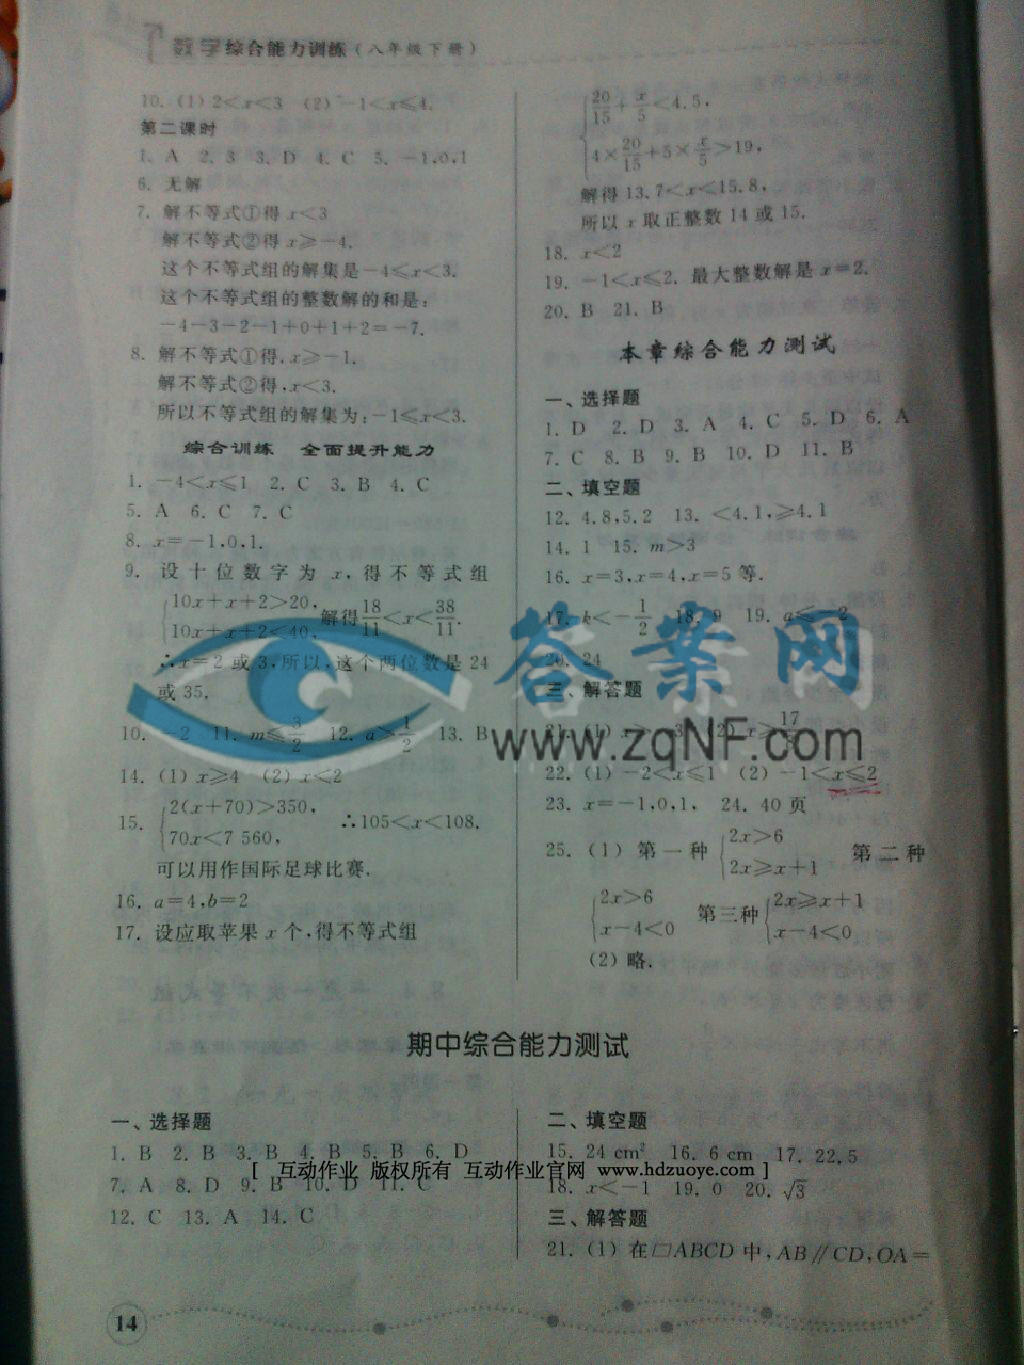 数学综合能力训练(八年级下册)
10. (1) 2<x<3 (2) -1<x≤4.
第二课时
1. A 2. 3 3. D 4. C 5. -1,0,1
6. 无解
7. 解不等式①得 x<3
解不等式②得 x≥-4.
这个不等式组的解集是-4≤x<3.
这个不等式组的整数解的和是:
-4-3-2-1+0+1+2=-7.
8. 解不等式①得,x≥-1.
解不等式②得,x<3.
所以不等式组的解集为:-1≤x<3.
综合训练 全面提升能力
1. -4<x≤1 2. C 3. B 4. C
5. A 6. C 7. C
8. x=-1,0,1.
9. 设十位数字为 x,得不等式组
10x+x+2>20,
10x+x+2<40, 解得18/11<x<38/11.
∴x=2 或 3,所以,这个两位数是 24
或 35.
10. -2 11. m≤3/2 12. a>1/2 13. B
14. (1) x≥4 (2) x<2
15. 2(x+70)>350,
70x<7 560, ∴105<x<108.
可以用作国际足球比赛.
16. a=4,b=2
17. 设应取苹果 x 个,得不等式组
20/15+x/5<4.5,
4×20/15+5×x/5>19,
解得 13.7<x≤15.8,
所以 x 取正整数 14 或 15.
18. x<2
19. -1<x≤2. 最大整数解是 x=2.
20. B 21. B
本章综合能力测试
一、选择题
1. D 2. D 3. A 4. C 5. D 6. A
7. C 8. B 9. B 10. D 11. B
二、填空题
12. 4.8,5.2 13. <4.1,≥4.1
14. 1 15. m>3
16. x=3,x=4,x=5 等.
17. k<-1/2 18. 9 19. a≤-2
20. 24
三、解答题
21. (1) x (2) x≥17
22. (1) -2<x≤1 (2) -1<x≤2
23. x=-1,0,1, 24. 40 页
25. (1) 第一种 2x>6
2x≥x+1 第二种
2x>6
x-4<0 第三种 2x≥x+1
x-4<0
(2) 略.
答案网
www.zqNF.com
期中综合能力测试
一、选择题
1. B 2. B 3. B 4. B 5. B 6. D
7. A 8. D 9. B 10. D 11. C
12. C 13. A 14. C
二、填空题
15. 24 cm² 16. 6 cm 17. 22.5
[ 互动作业 版权所有 互动作业官网 www.hdzuoye.com ]
18. x<-1 19. 0 20. √3
三、解答题
21. (1) 在□ABCD 中,AB∥CD,OA=
14